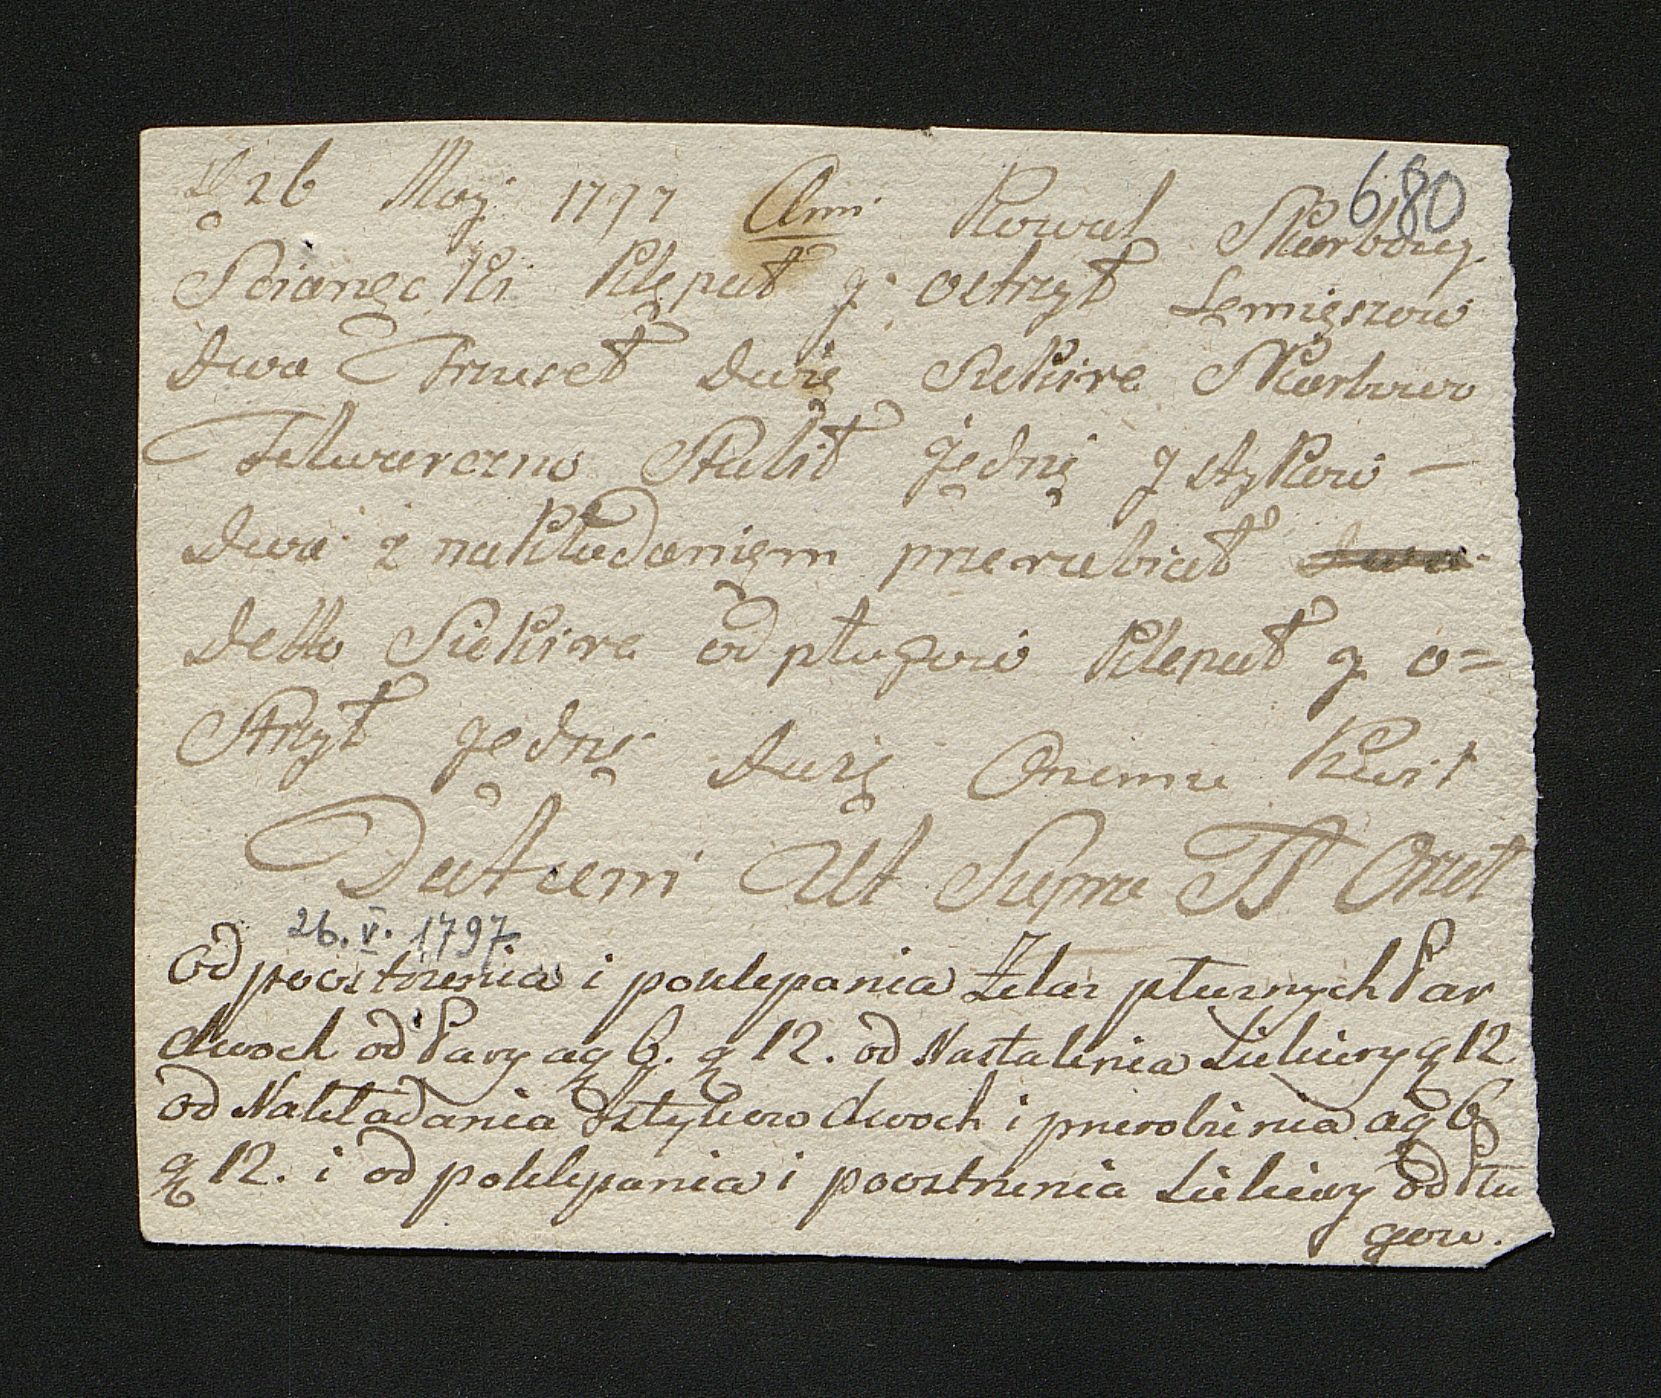 680
D 26 Maij 1797 Anni Kowal Skarbowy
Scianęcki Klępał y ostrzył Lęmięszow
dwa Trzuseł dwię Siekire Skarbowo
Folwarczno Stalił jędnę Jstykow —
dwa z nakładanięm przerabiał
detto Siekire od pługow Klepał y o=
strzył jędnę daię Onemu Kwit
Datum Ut Supra JS Orzeł
26. V. 1797.
Od poostrzenia i poklepania Żelaz płuznych Par
dwoch od Pary a g 6. g 12. od Nastalenia Siekiery g 12
od Nakładania Jstykow dwoch i przerobienia a g 6
g 12. i od poklepania i poostrzenia Siekiery od Płu
gow.